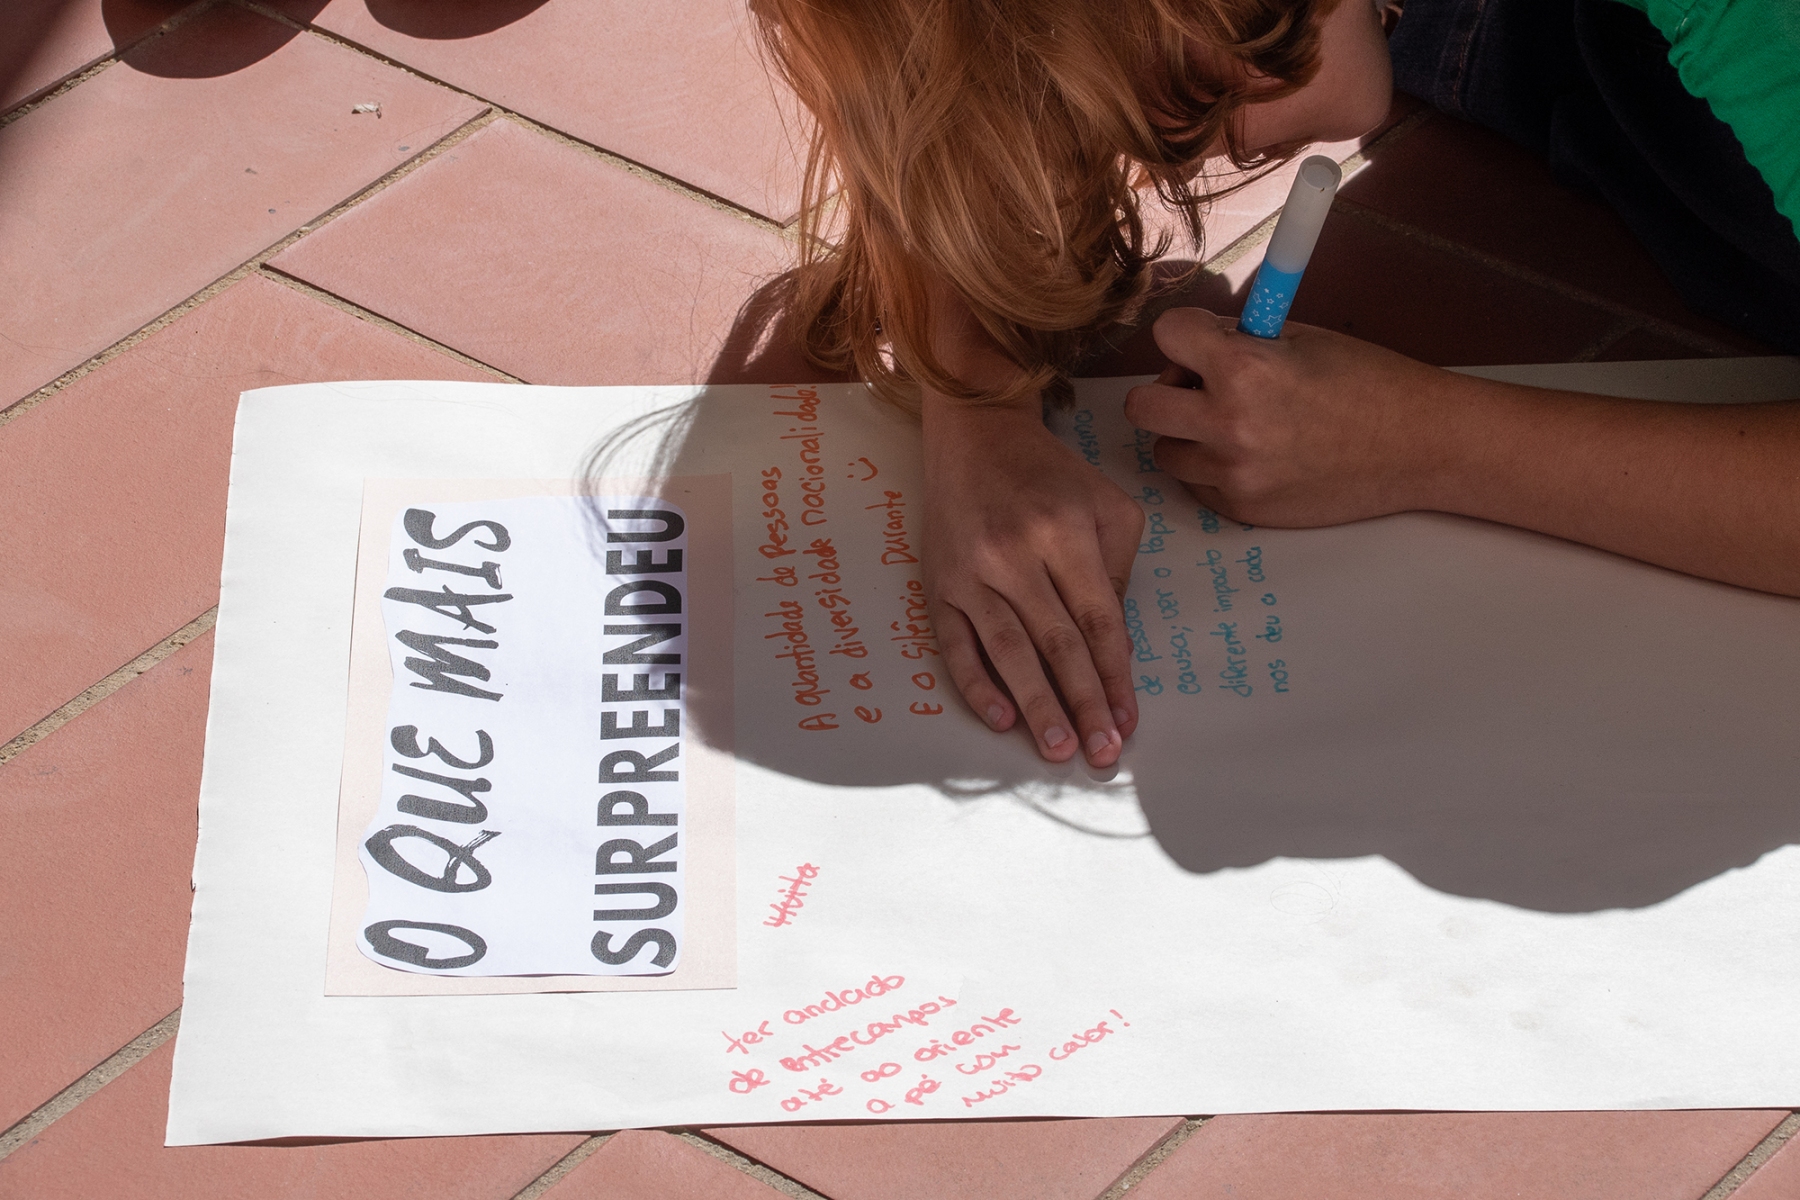 O QUE MAIS
SURPREENDEU
A quantidade de Pessoas
e a diversidade nacionalidade!
E o Silêncio Durante
de pessoas
causa; ver o Papa de perto
diferente impacto
nos deu a cada
ter andado
de entrecampos
até ao oriente
a pé com
muito calor!